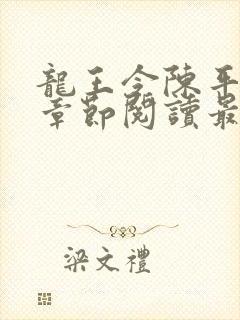 龍王令陳平
章節閱讀最
梁文禮